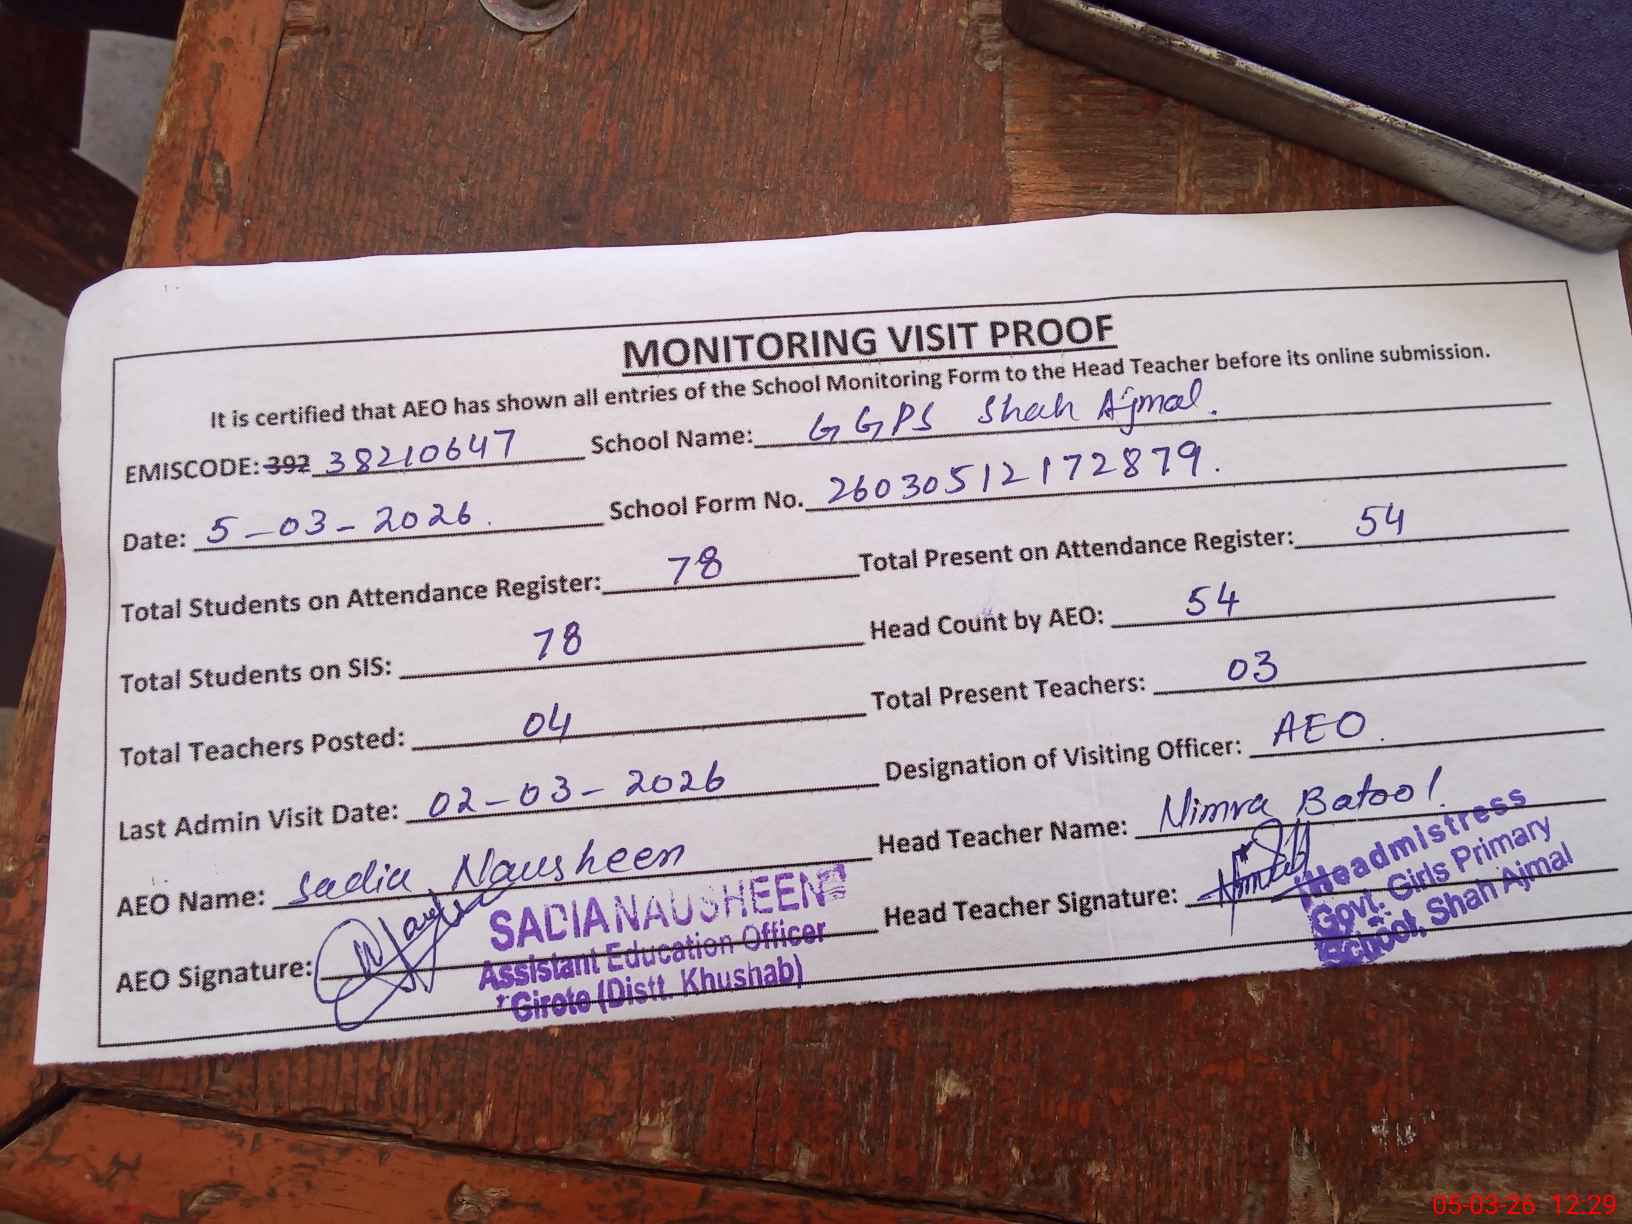 MONITORING VISIT PROOF
It is certified that AEO has shown all entries of the School Monitoring Form to the Head Teacher before its online submission.
EMISCODE: 392 38210647 School Name: GGPS Shah Ajmal.
Date: 5-03-2026. School Form No. 260305121728​79.
Total Students on Attendance Register: 78 Total Present on Attendance Register: 54
Total Students on SIS: 78 Head Count by AEO: 54
Total Teachers Posted: 04 Total Present Teachers: 03
Last Admin Visit Date: 02-03-2026 Designation of Visiting Officer: AEO.
AEO Name: Sadia Nausheen Head Teacher Name: Nimra Batool.
AEO Signature: Head Teacher Signature:
SADIA NAUSHEEN
Assistant Education Officer
Girote (Distt. Khushab)
Headmistress
Govt. Girls Primary
School, Shah Ajmal
05-03-26 12:29